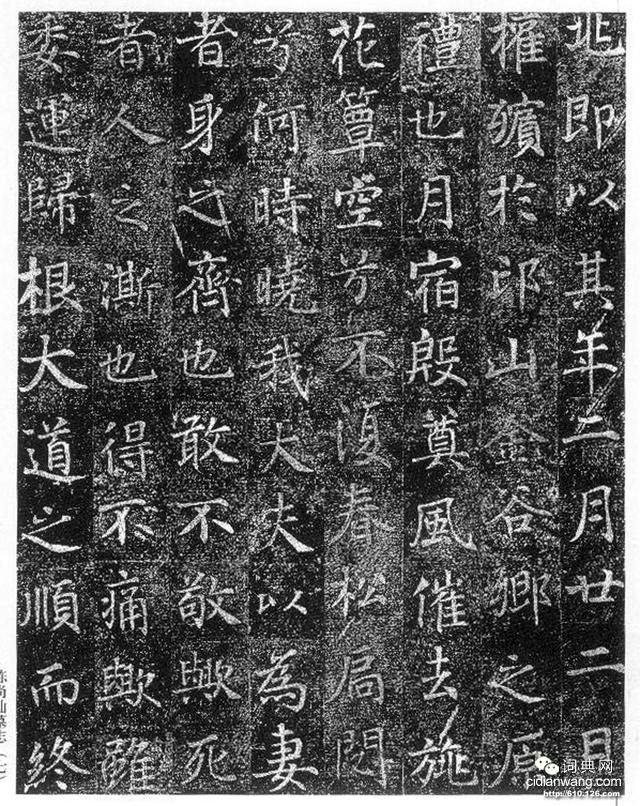 兆即以其年二月廿二日
權殯於邙山金谷鄉之原
禮也月宿殷奠風催去旐
花簟空兮不復春松扃閟
兮何時曉我大夫以為妻
者身之齊也敢不敬歟死
者人之澌也得不痛歟雖
委運歸根大道之順而終
陈尚仙墓志
词典网
cidianwang.com
http://610.126.com